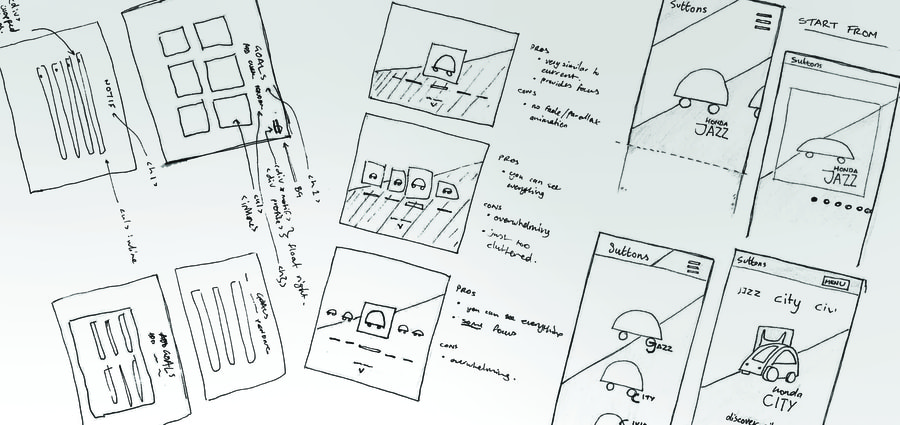 NOTIF
<h1>
GOALS
<h1>
BG
float right.
PROS
• very similar to
current.
• provides focus
CONS
• no fade/parallax
animation
PROS
• you can see
everything
CONS
• overwhelming
• just too
cluttered.
PROS
• you can see everything
• some focus
CONS
• overwhelming.
Suttons
HONDA
JAZZ
START FROM
Suttons
HONDA
JAZZ
Suttons
JAZZ
CITY
Suttons
MENU
JAZZ City Civi
Honda
CITY
ADD GOALS
GOALS